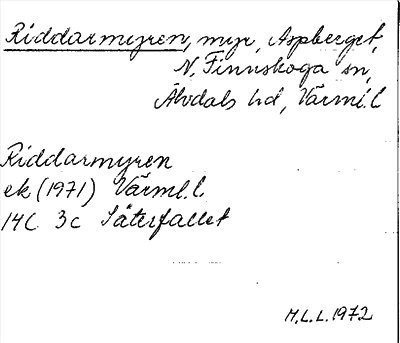 Riddarmyren, myr, Aspberget,
N. Finnskoga sn,
Älvdals hd, Värml. l
Riddarmyren
ek (1971) Värml. l.
14C 3c Säterfallet
M.L.L. 1972